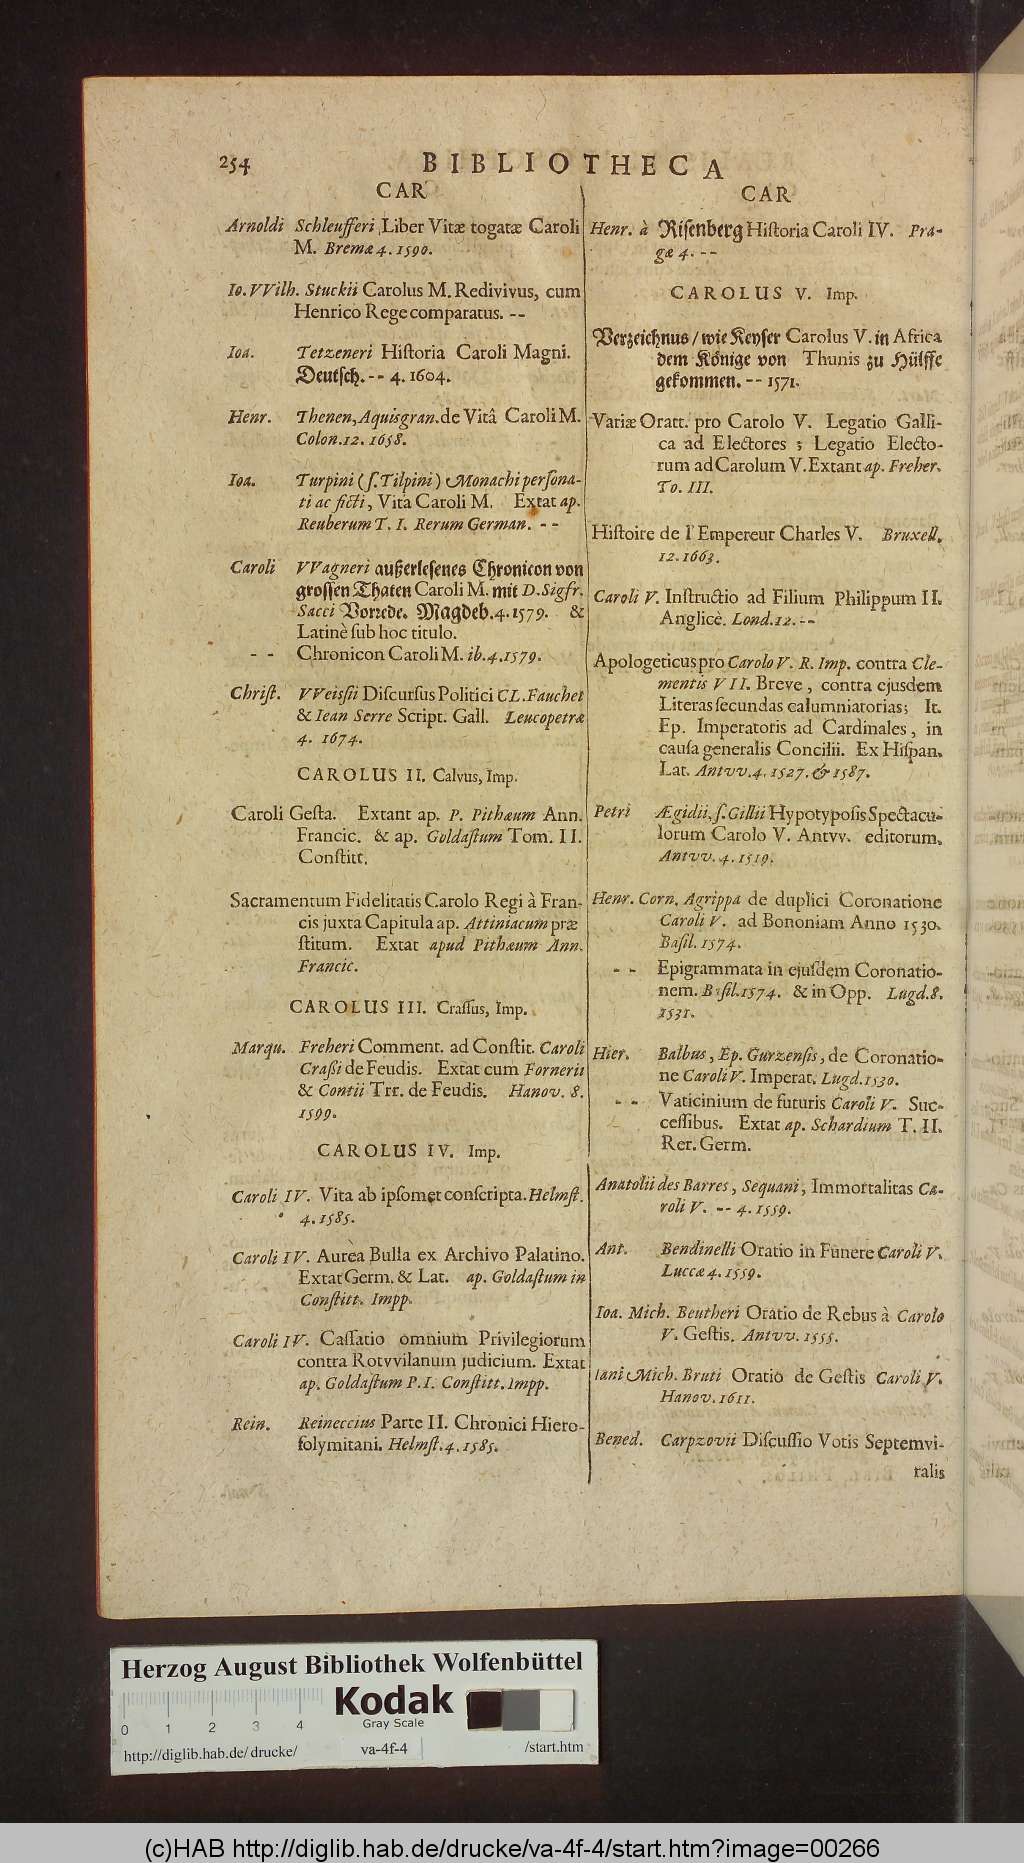 254
BIBLIOTHECA
CAR
Arnoldi Schleufferi Liber Vitæ togatæ Caroli
M. Bremæ 4. 1590.
Io. VVilh. Stuckii Carolus M. Redivivus, cum
Henrico Rege comparatus. --
Ioa. Tetzeneri Hiſtoria Caroli Magni.
Deutſch. -- 4. 1604.
Henr. Thenen, Aquisgran. de Vitâ Caroli M.
Colon. 12. 1658.
Ioa. Turpini (ſ. Tilpini) Monachi perſona-
ti ac ficti, Vita Caroli M. Extat ap.
Reuberum T. I. Rerum German. --
Caroli VVagneri außerleſenes Chronicon von
groſſen Thaten Caroli M. mit D. Sigfr.
Sacci Vorrede. Magdeb. 4. 1579. &
Latinè ſub hoc titulo.
-- Chronicon Caroli M. ib. 4. 1579.
Chriſt. VVeiſſii Diſcurſus Politici CL. Fauchet
& Iean Serre Script. Gall. Leucopetræ
4. 1674.
CAROLUS II. Calvus, Imp.
Caroli Geſta. Extant ap. P. Pithæum Ann.
Francic. & ap. Goldaſtum Tom. II.
Conſtitt.
Sacramentum Fidelitatis Carolo Regi à Fran-
cis juxta Capitula ap. Attiniacum præ
ſtitum. Extat apud Pithæum Ann.
Francic.
CAROLUS III. Craſſus, Imp.
Marqu. Freheri Comment. ad Conſtit. Caroli
Craſſi de Feudis. Extat cum Fornerii
& Contii Trr. de Feudis. Hanov. 8.
1599.
CAROLUS IV. Imp.
Caroli IV. Vita ab ipſomet conſcripta. Helmſt.
4. 1585.
Caroli IV. Aurea Bulla ex Archivo Palatino.
Extat Germ. & Lat. ap. Goldaſtum in
Conſtitt. Impp.
Caroli IV. Caſſatio omnium Privilegiorum
contra Rotvvilanum judicium. Extat
ap. Goldaſtum P. I. Conſtitt. Impp.
Rein. Reineccius Parte II. Chronici Hiero-
ſolymitani. Helmſt. 4. 1585.
CAR
Henr. à Riſenberg Hiſtoria Caroli IV. Pra-
gæ 4. --
CAROLUS V. Imp.
Verzeichnus / wie Keyſer Carolus V. in Africa
dem Könige von Thunis zu Hülffe
gekommen. -- 1571.
Variæ Oratt. pro Carolo V. Legatio Galli-
ca ad Electores ; Legatio Electo-
rum ad Carolum V. Extant ap. Freher.
To. III.
Hiſtoire de l'Empereur Charles V. Bruxell.
12. 1663.
Caroli V. Inſtructio ad Filium Philippum II.
Anglicè. Lond. 12. --
Apologeticus pro Carolo V. R. Imp. contra Cle-
mentis VII. Breve, contra ejusdem
Literas ſecundas calumniatorias; It.
Ep. Imperatoris ad Cardinales, in
cauſa generalis Concilii. Ex Hiſpan.
Lat. Antvv. 4. 1527. & 1587.
Petri Ægidii, ſ. Gillii Hypotypoſis Spectacu-
lorum Carolo V. Antvv. editorum.
Antvv. 4. 1519.
Henr. Corn. Agrippa de duplici Coronatione
Caroli V. ad Bononiam Anno 1530.
Baſil. 1574.
-- Epigrammata in ejuſdem Coronatio-
nem. Baſil. 1574. & in Opp. Lugd. 8.
1531.
Hier. Balbus, Ep. Gurzenſis, de Coronatio-
ne Caroli V. Imperat. Lugd. 1530.
-- Vaticinium de futuris Caroli V. Suc-
ceſſibus. Extat ap. Schardium T. II.
Rer. Germ.
Anatolii des Barres, Sequani, Immortalitas Ca-
roli V. -- 4. 1559.
Ant. Bendinelli Oratio in Funere Caroli V.
Luccæ 4. 1559.
Ioa. Mich. Beutheri Oratio de Rebus à Carolo
V. Geſtis. Antvv. 1555.
Iani Mich. Bruti Oratio de Geſtis Caroli V.
Hanov. 1611.
Bened. Carpzovii Diſcuſſio Votis Septemvi-
ralis
Herzog August Bibliothek Wolfenbüttel
Kodak
Gray Scale
0 1 2 3 4
http://diglib.hab.de/drucke/ va-4f-4 /start.htm
(c)HAB http://diglib.hab.de/drucke/va-4f-4/start.htm?image=00266